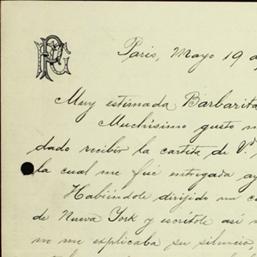 Paris, Mayo 19 d
Muy estimada Barbarita
Muchísimo gusto m
dado recibir la cartita de Vd.,
la cual me fué entregada ay
Habiéndole dirijido un ca
de Nueva York y escritole así m
no me explicaba su silencio,